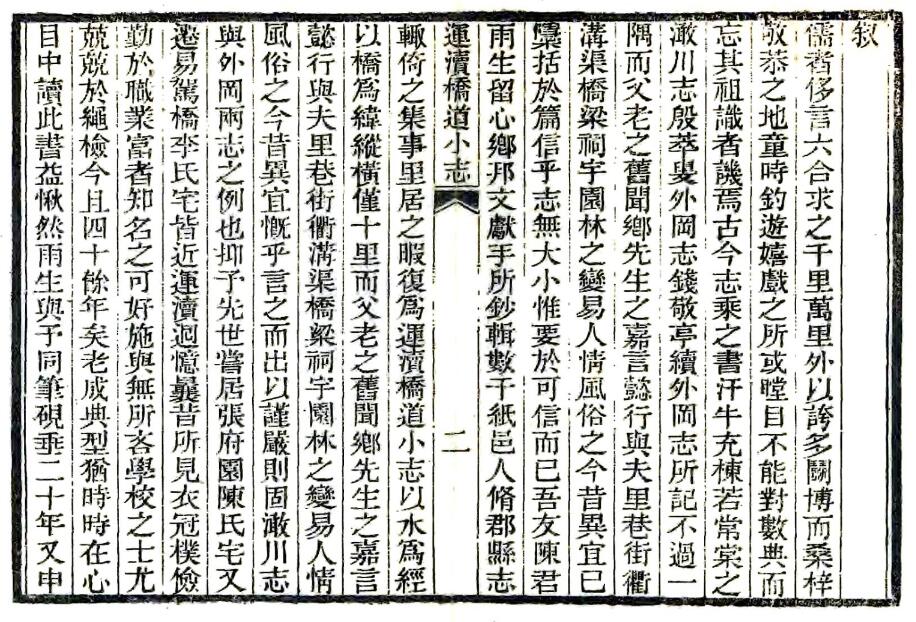 叙
儒者侈言六合求之千里萬里外以誇多鬬博而桑梓
敬恭之地童時釣遊嬉戲之所或瞠目不能對數典而
忘其祖識者譏焉古今志乘之書汗牛充棟若常棠之
澉川志殷萃叟外岡志錢敬亭續外岡志所記不過一
隅而父老之舊聞鄉先生之嘉言懿行與夫里巷街衢
溝渠橋梁祠宇園林之變易人情風俗之今昔異宜已
檃括於篇信乎志無大小惟要於可信而已吾友陳君
雨生留心鄉邦文獻手所鈔輯數千紙邑人脩郡縣志
運瀆橋道小志 二
輙倚之集事里居之暇復爲運瀆橋道小志以水爲經
以橋爲緯縱橫僅十里而父老之舊聞鄉先生之嘉言
懿行與夫里巷街衢溝渠橋梁祠宇園林之變易人情
風俗之今昔異宜慨乎言之而出以謹嚴則固澉川志
與外岡兩志之例也抑予先世嘗居張府園陳氏宅又
遷易駕橋李氏宅皆近運瀆迴憶曩昔所見衣冠樸儉
勤於職業富者知名之可好施與無所吝學校之士尤
兢兢於繩檢今且四十餘年矣老成典型猶時時在心
目中讀此書益愀然雨生與予同筆硯垂二十年又申